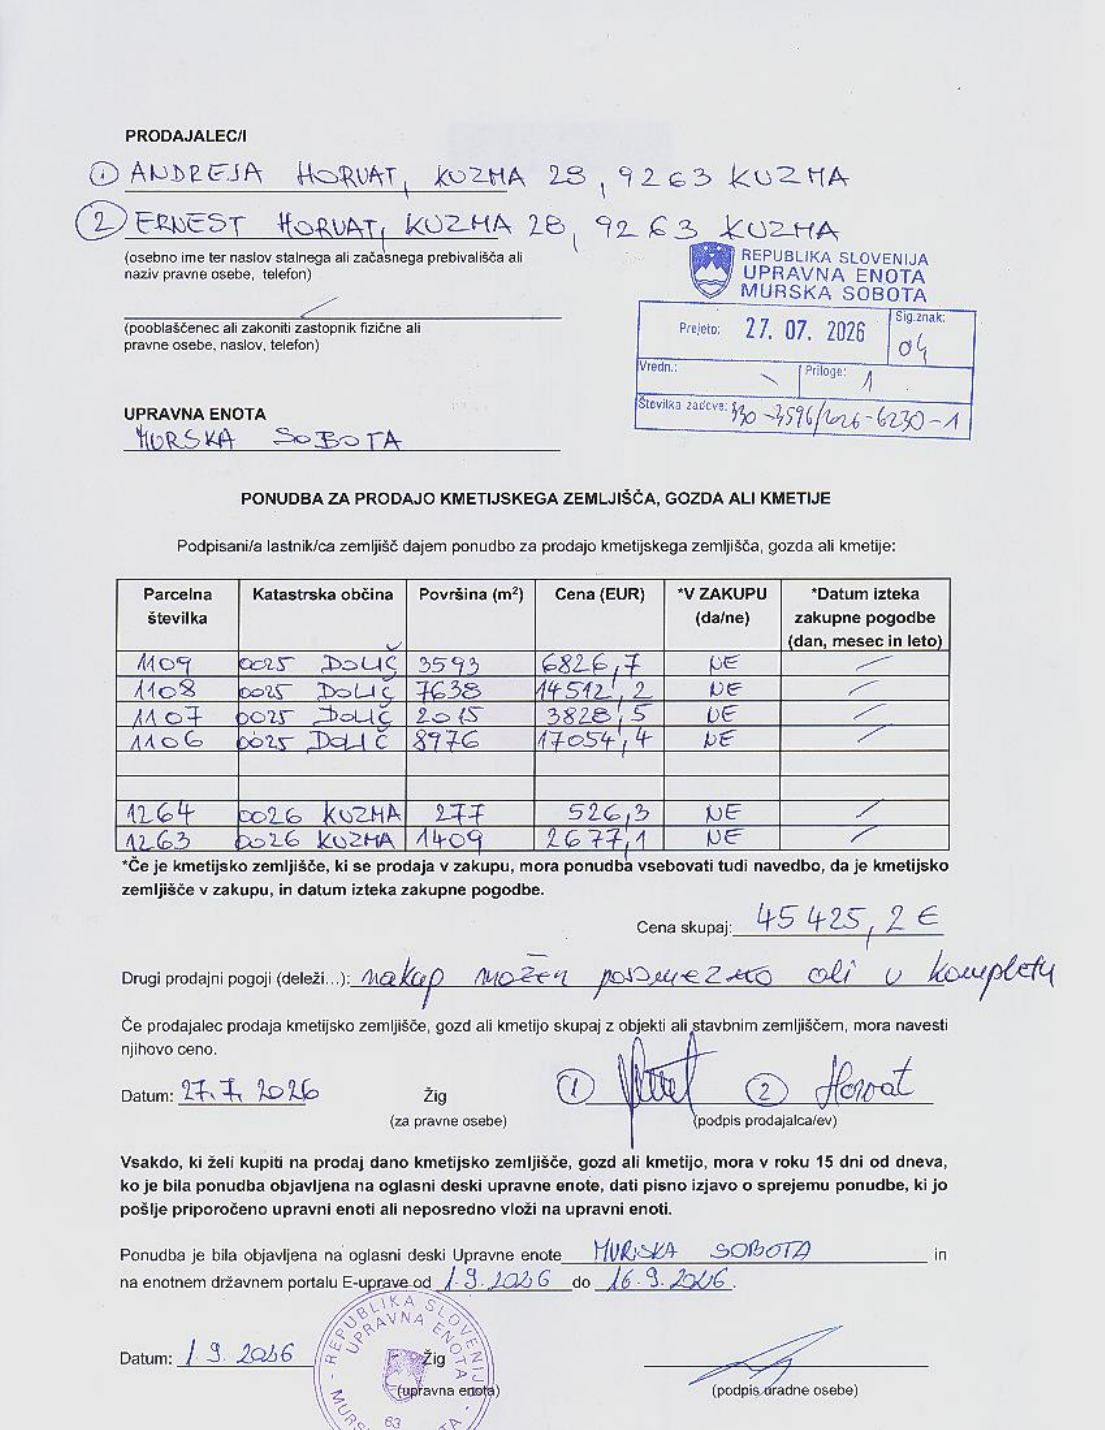 PRODAJALEC/I
1 ANDREJA HORVAT, KUZMA 28, 9263 KUZMA
2 ERNEST HORVAT, KUZMA 28, 9263 KUZMA
(osebno ime ter naslov stalnega ali začasnega prebivališča ali
naziv pravne osebe, telefon)
REPUBLIKA SLOVENIJA
UPRAVNA ENOTA
MURSKA SOBOTA
Prejeto: 27. 07. 2026 Sig.znak: 04
(pooblaščenec ali zakoniti zastopnik fizične ali
pravne osebe, naslov, telefon)
Vredn.: Priloge: 1
Številka zadeve: 330-3596/2026-6230-1
UPRAVNA ENOTA
MURSKA SOBOTA
PONUDBA ZA PRODAJO KMETIJSKEGA ZEMLJIŠČA, GOZDA ALI KMETIJE
Podpisani/a lastnik/ca zemljišč dajem ponudbo za prodajo kmetijskega zemljišča, gozda ali kmetije:
Parcelna številka Katastrska občina Površina (m²) Cena (EUR) *V ZAKUPU (da/ne) *Datum izteka zakupne pogodbe (dan, mesec in leto)
1109 0025 DOLIČ 3593 6826,7 NE
1108 0025 DOLIČ 7638 14512,2 NE
1107 0025 DOLIČ 2015 3828,5 NE
1106 0025 DOLIČ 8976 17054,4 NE
1264 0026 KUZMA 277 526,3 NE
1263 0026 KUZMA 1409 2677,1 NE
*Če je kmetijsko zemljišče, ki se prodaja v zakupu, mora ponudba vsebovati tudi navedbo, da je kmetijsko
zemljišče v zakupu, in datum izteka zakupne pogodbe.
Cena skupaj: 45 425,2 €
Drugi prodajni pogoji (deleži...): nakup možen posamezno ali v kompletu
Če prodajalec prodaja kmetijsko zemljišče, gozd ali kmetijo skupaj z objekti ali stavbnim zemljiščem, mora navesti
njihovo ceno.
Datum: 27.7.2026 Žig 1 2 Horvat
(za pravne osebe) (podpis prodajalca/ev)
Vsakdo, ki želi kupiti na prodaj dano kmetijsko zemljišče, gozd ali kmetijo, mora v roku 15 dni od dneva,
ko je bila ponudba objavljena na oglasni deski upravne enote, dati pisno izjavo o sprejemu ponudbe, ki jo
pošlje priporočeno upravni enoti ali neposredno vloži na upravni enoti.
Ponudba je bila objavljena na oglasni deski Upravne enote MURSKA SOBOTA in
na enotnem državnem portalu E-uprave od 1.9.2026 do 16.9.2026.
REPUBLIKA SLOVENIJA
UPRAVNA ENOTA
Datum: 1.9.2026 Žig
(upravna enota) (podpis uradne osebe)
63